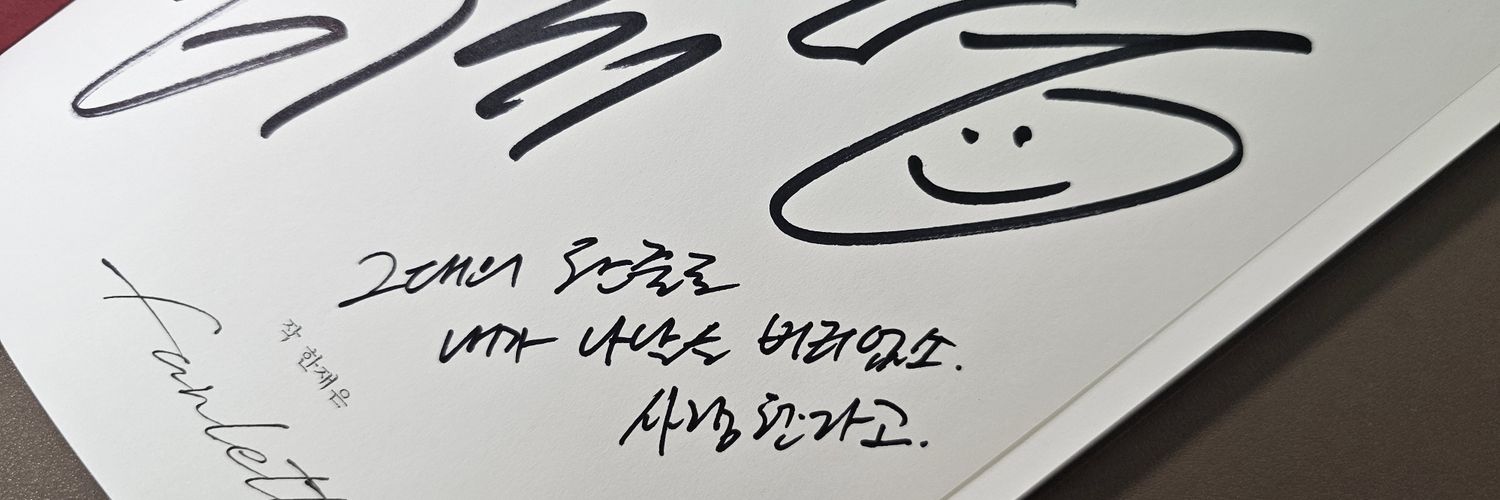 그대의 한줄로
내가 나날을 버티었소.
사랑한다고.
작 한재은
Fanlett